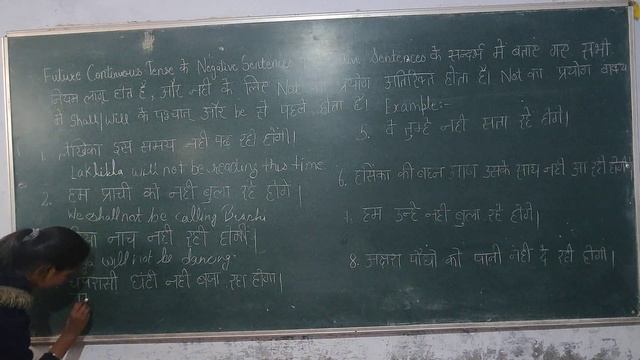 Future Continuous Tense के Negative Sentences Sentences के सन्दर्भ में बताए गए सभी
नियम लागू होते हैं, और नही के लिए Not प्रयोग अतिरिक्त होता है। Not का प्रयोग वाक्य
में Shall/Will के पश्चात् और be से पहले होता है। Example:-
1. इस समय नही पढ़ रही होगी।
will not be reading this time
2. हम प्राची को नही बुला रहे होंगे।
We shall not be calling
नाच नही रही होगी।
will not be dancing.
घंटी नही बजा रहा होगा।
5. वे तुम्हे नही सता रहे होंगे।
6. की बहन आज उसके साथ नही आ रही होगी
7. हम उन्हे नही बुला रहे होंगे।
8. पौधों को पानी नही दे रही होगी।